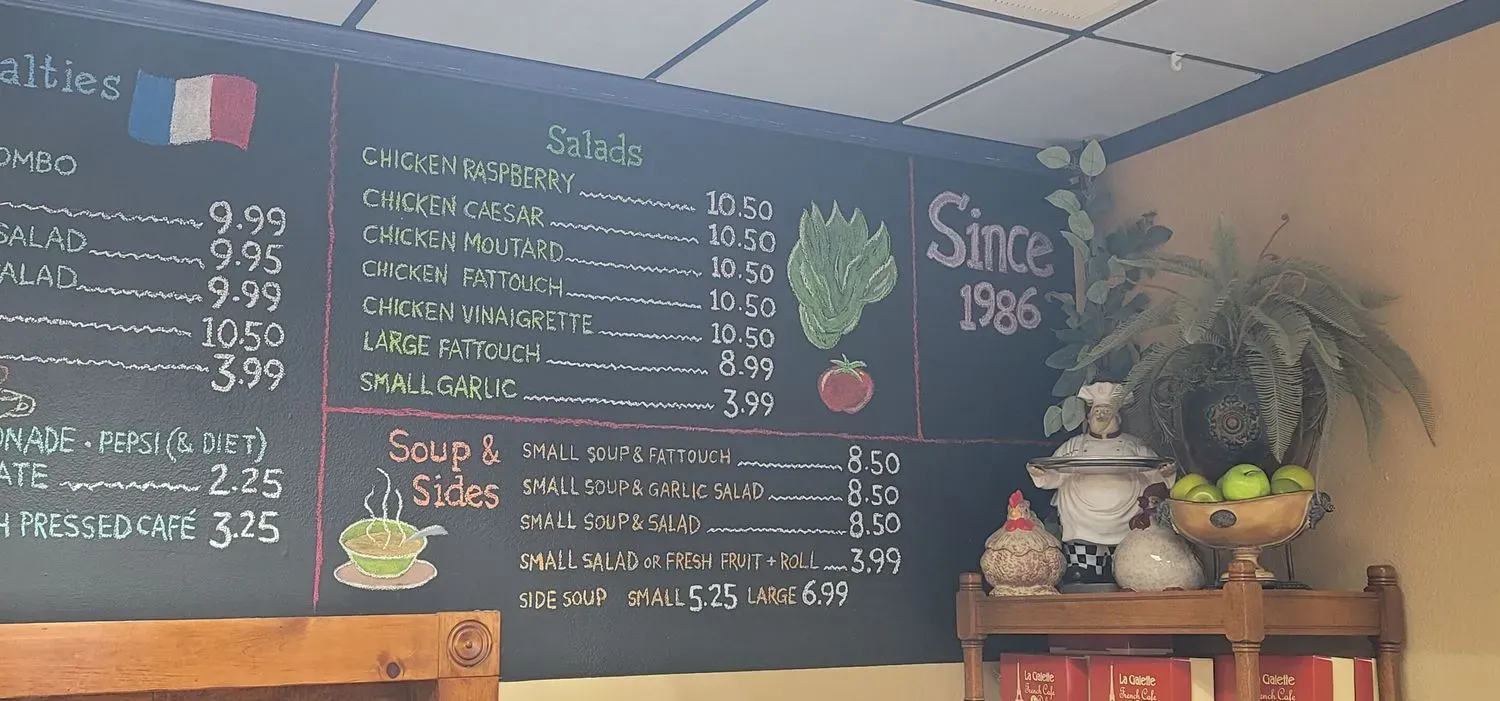 alties
OMBO
9.99
SALAD 9.95
ALAD 9.99
10.50
3.99
ONADE • PEPSI (& DIET)
ATE 2.25
H PRESSED CAFÉ 3.25
Salads
CHICKEN RASPBERRY 10.50
CHICKEN CAESAR 10.50
CHICKEN MOUTARD 10.50
CHICKEN FATTOUCH 10.50
CHICKEN VINAIGRETTE 10.50
LARGE FATTOUCH 8.99
SMALL GARLIC 3.99
Soup &
Sides
SMALL SOUP & FATTOUCH 8.50
SMALL SOUP & GARLIC SALAD 8.50
SMALL SOUP & SALAD 8.50
SMALL SALAD OR FRESH FRUIT + ROLL 3.99
SIDE SOUP SMALL 5.25 LARGE 6.99
Since
1986
La Galette
French Cafe
La Galette
French Cafe
La Galette
ench Cafe